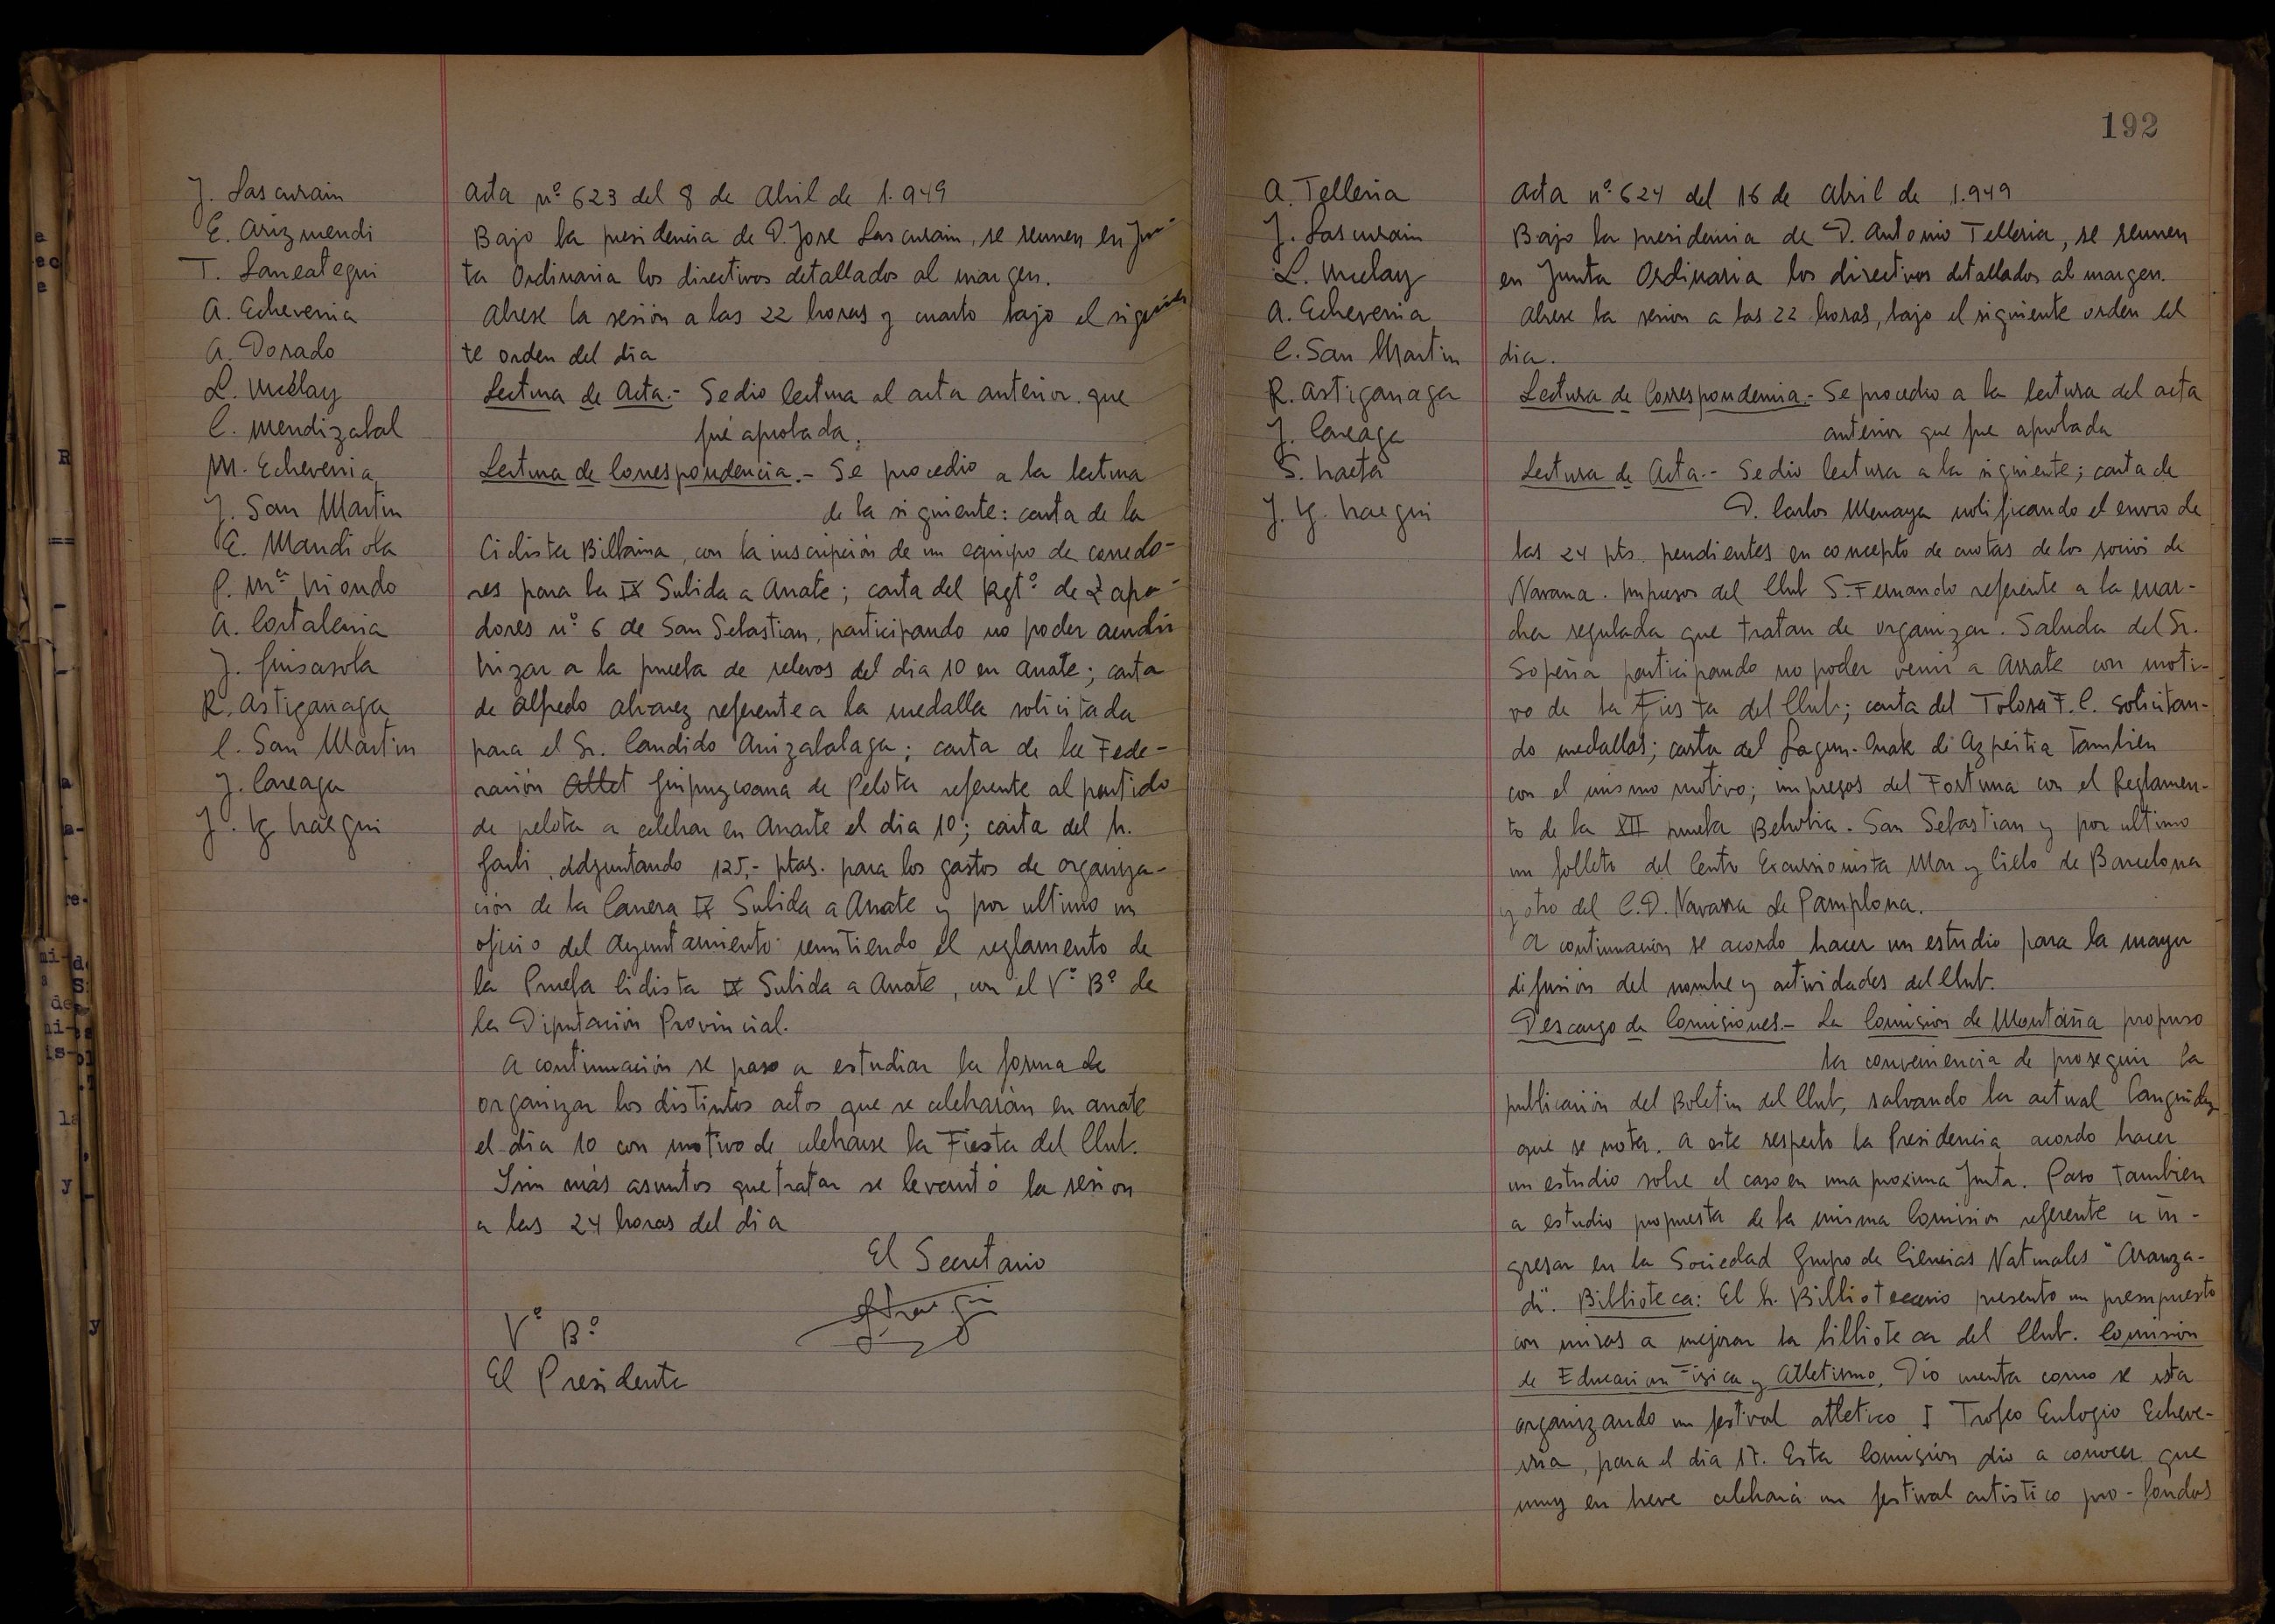 J. Lascurain
E. Arizmendi
T. Lanzategui
A. Echeverria
A. Dorado
L. Muday
C. Mendizabal
M. Echeverria
J. San Martin
E. Mandiola
P. Mª Riondo
A. Cortaberria
J. Guisasola
R. Astigarraga
C. San Martin
J. Careaga
J. Ig. Iraegui
Acta nº 623 del 8 de Abril de 1.949
Bajo la presidencia de D. Jose Lascurain, se reunen en Jun-
ta Ordinaria los directivos detallados al margen.
Abrese la sesión a las 22 horas y cuarto bajo el siguien
te orden del dia
Lectura de Acta.- Se dio lectura al acta anterior que
fué aprobada.
Lectura de Correspondencia.- Se procedio a la lectura
de la siguiente: carta de la
Ciclista Bilbaina, con la inscripción de un equipo de corredo-
res para la IX Subida a Arrate; carta del Rgtº de Zapa-
dores nº 6 de San Sebastian, participando no poder acudir
a la prueba de relevos del dia 10 en Arrate; carta
de Alfredo Alvarez referente a la medalla solicitada
para el Sr. Candido Arrizabalaga; carta de la Fede-
ración Atlet Guipuzcoana de Pelota referente al partido
de pelota a celebrar en Arrate el dia 10; carta del Sr.
Garbi, adjuntando 125,- ptas. para los gastos de organiza-
ción de la Carrera IX Subida a Arrate y por ultimo un
oficio del Ayuntamiento remitiendo el reglamento de
la Prueba Ciclista IX Subida a Arrate, con el Vº Bº de
la Diputación Provincial.
A continuación se paso a estudiar la forma de
organizar los distintos actos que se celebrarán en Arrate
el dia 10 con motivo de celebrarse la Fiesta del Club.
Sin más asuntos que tratar se levantó la sesion
a las 24 horas del dia
El Secretario
Vº Bº
El Presidente
192
A. Telleria
J. Lascurain
L. Muday
A. Echeverria
C. San Martin
R. Astigarraga
J. Careaga
S. Iraeta
J. Ig. Iraegui
Acta nº 624 del 16 de Abril de 1.949
Bajo la presidencia de D. Antonio Telleria, se reunen
en Junta Ordinaria los directivos detallados al margen.
Abrese la sesion a las 22 horas, bajo el siguiente orden del
dia.
Lectura de Correspondencia.- Se procedio a la lectura del acta
anterior que fue aprobada
Lectura de Acta.- Se dio lectura a la siguiente; carta de
D. Carlos Menaya notificando el envio de
las 24 pts. pendientes en concepto de cuotas de los socios de
Navarra. Impresos del Club S. Fernando referente a la mar-
cha regulada que tratan de organizar. Saluda del Sr.
Sopeña participando no poder venir a Arrate con moti-
vo de la Fiesta del Club; carta del Tolosa F.C. solicitan-
do medallas; carta del Lagun-Onak de Azpeitia tambien
con el mismo motivo; impresos del Fortuna con el Reglamen-
to de la XII prueba Behobia. San Sebastian y por ultimo
un folleto del Centro Excursionista Mar y Cielo de Barcelona
y otro del C.D. Navarra de Pamplona.
A continuacion se acordo hacer un estudio para la mayor
difusion del nombre y actividades del Club.
Descargo de Comisiones.- La Comision de Montaña propuso
la conveniencia de proseguir la
publicación del Boletin del Club, salvando la actual languidez
que se nota. A este respecto la Presidencia acordo hacer
un estudio sobre el caso en una proxima Junta. Paso tambien
a estudio propuesta de la misma Comision referente a in-
gresar en la Sociedad Grupo de Ciencias Naturales "Aranza-
di". Biblioteca: El Sr. Bibliotecario presento un presupuesto
con miras a mejorar la biblioteca del Club. Comision
de Educacion Fisica y Atletismo. Dio cuenta como se esta
organizando un festival atletico I Trofeo Eulogio Echeve-
rria, para el dia 17. Esta Comisión dio a conocer que
muy en breve celebrará un festival artistico pro-fondos